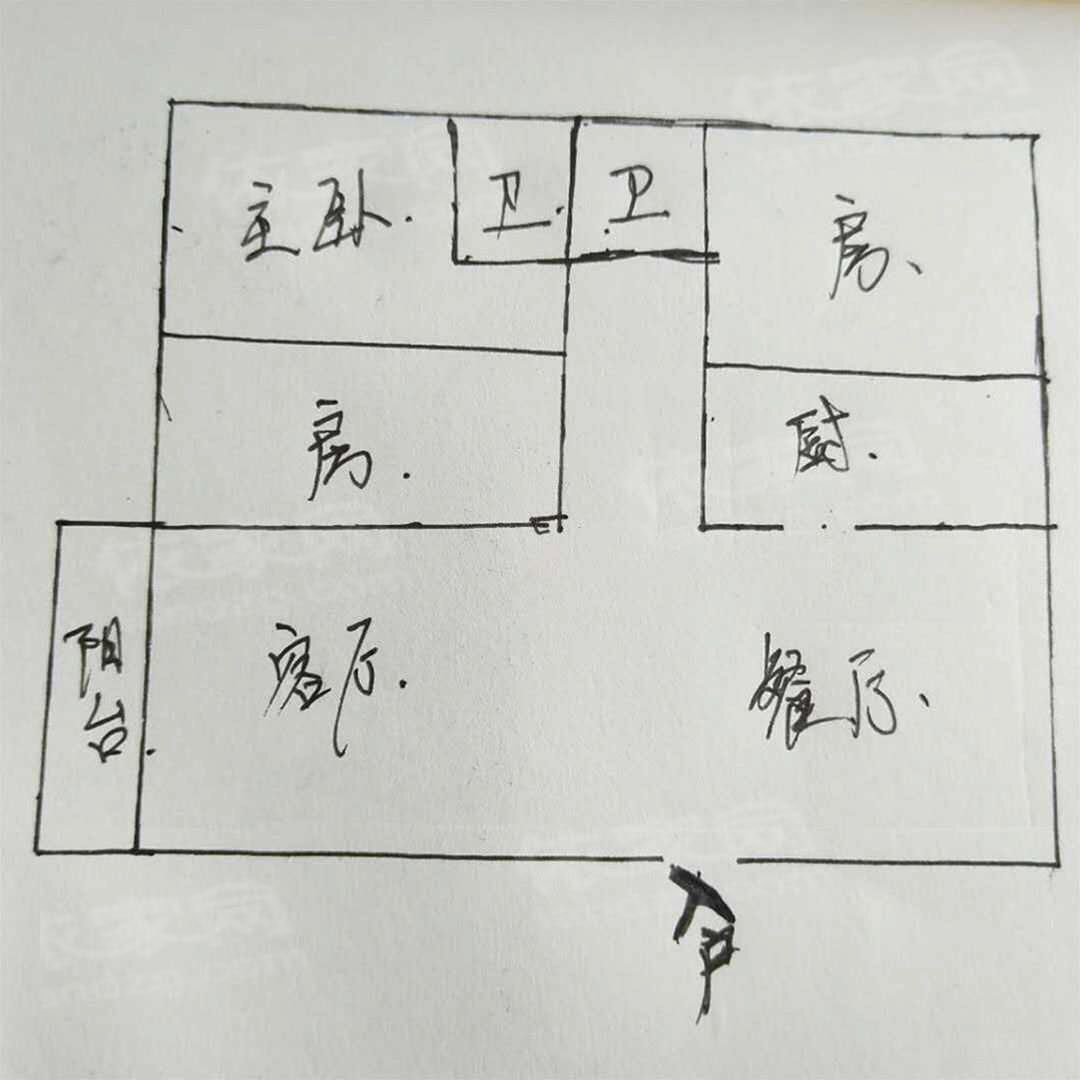 主卧
卫
卫
房
房
厨
阳台
客厅
餐厅
入户